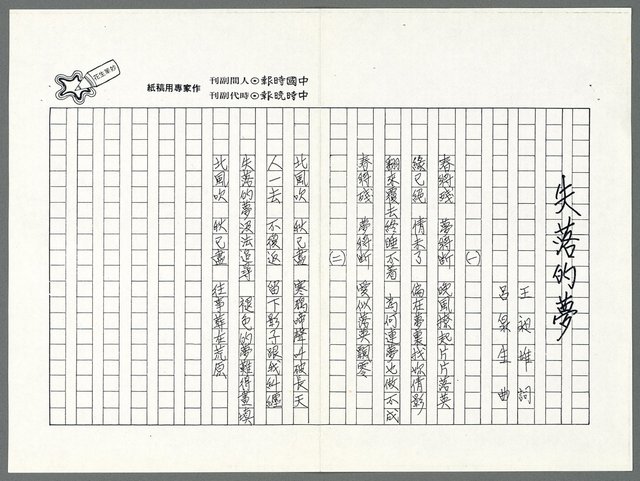 中國時報⊙人間副刊
中時晚報⊙時代副刊
作家專用稿紙
妙筆生花
失落的夢
王昶雄 詞
呂泉生 曲
(一)
春將殘 夢將斷 晚風撩起片片落英
緣已絕 情未了 偏在夢裏找你倩影
翻來覆去終睡不著 為何連夢也做不成
春將殘 夢將斷 愛似落英飄零
(二)
北風吹 秋已盡 寒鴉啼聲叫破長天
人一去 不復返 留下影子跟我糾纏
失落的夢沒法追尋 褪色的夢難得重填
北風吹 秋已盡 往事葬在荒原